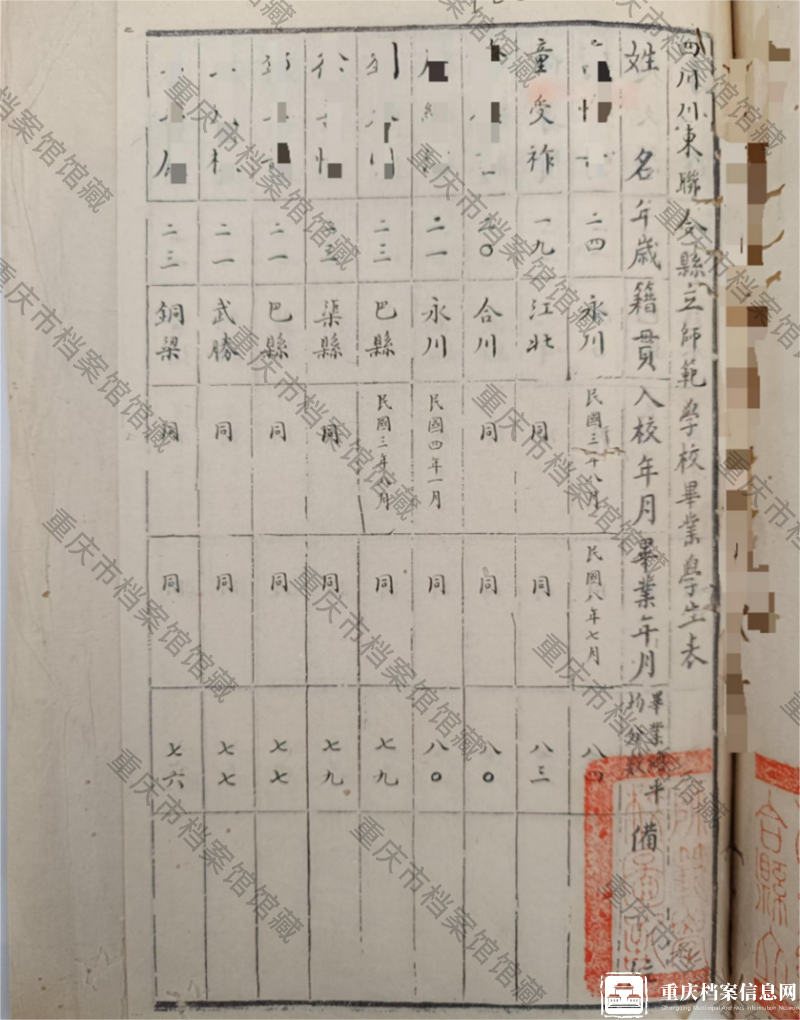 四川川東聯合縣立師範學校畢業學生表
姓名 年歲 籍貫 入校年月 畢業年月 畢業總平均分數 備
二四 永川 民國三年八月 民國八年七月 八四
童受祚 一九 江北 同 同 八三
二〇 合川 同 同 八〇
二一 永川 民國四年一月 同 八〇
二三 巴縣 民國三年八月 同 七九
渠縣 同 同 七九
二一 巴縣 同 同 七七
二一 武勝 同 同 七七
二三 銅梁 同 同 七六
重庆市档案馆馆藏
重庆档案信息网